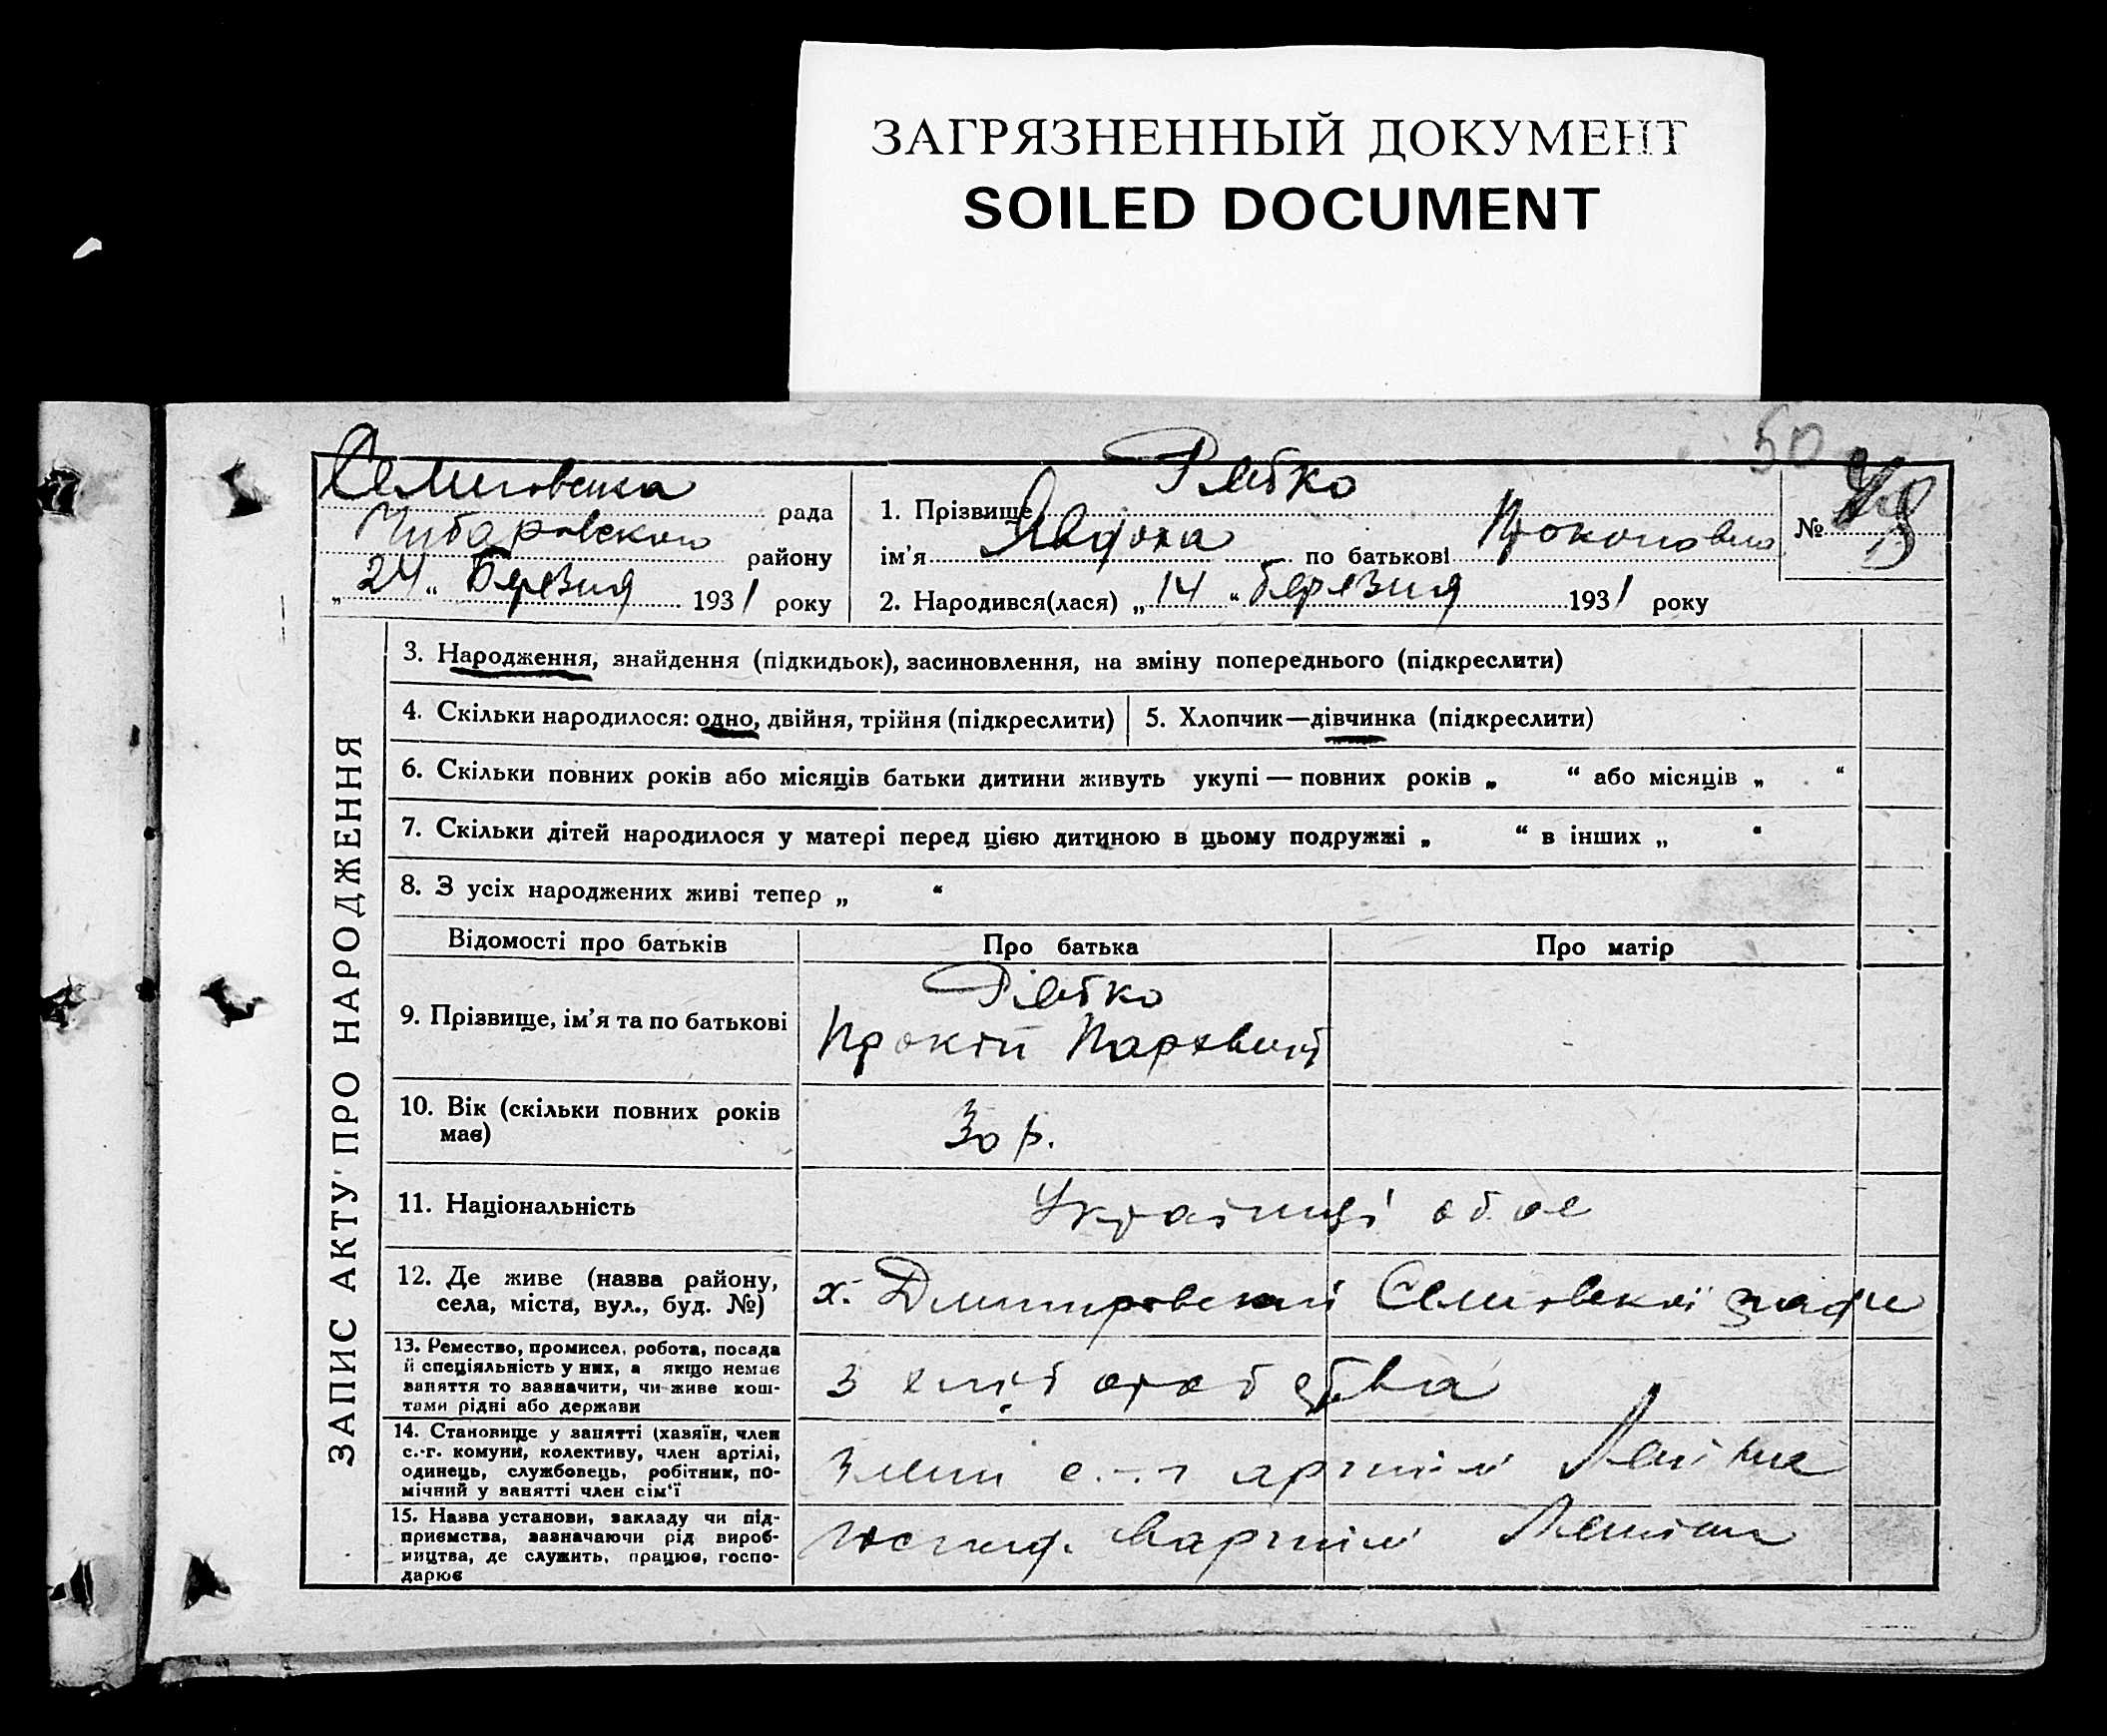 ЗАГРЯЗНЕННЫЙ ДОКУМЕНТ
SOILED DOCUMENT
50
рада
району
„24“ Березня 1931 року
1. Прізвище
ім’я Явдоха по батькові Прокоповна
№
2. Народився(лася) „14“ березня 1931 року
ЗАПИС АКТУ ПРО НАРОДЖЕННЯ
3. Народження, знайдення (підкидьок), засиновлення, на зміну попереднього (підкреслити)
4. Скільки народилося: одно, двійня, трійня (підкреслити)
5. Хлопчик—дівчинка (підкреслити)
6. Скільки повних років або місяців батьки дитини живуть укупі — повних років „ “ або місяців „ “
7. Скільки дітей народилося у матері перед цією дитиною в цьому подружжі „ “ в інших „ “
8. З усіх народжених живі тепер „ “
Відомості про батьків
Про батька
Про матір
9. Прізвище, ім’я та по батькові
Прокіп
10. Вік (скільки повних років
має)
30 р.
11. Національність
Українці обоє
12. Де живе (назва району,
села, міста, вул., буд. №)
х. Дмитровский
13. Ремество, промисел, робота, посада
й спеціяльність у них, а якщо немає
заняття то зазначити, чи живе кош-
тами рідні або держави
З хліборобства
14. Становище у занятті (хазяїн, член
с.-г. комуни, колективу, член артілі,
одинець, службовець, робітник, по-
мічний у занятті член сім’ї
артілі
15. Назва установи, закладу чи під-
приємства, зазначаючи рід вироб-
ництва, де служить, працює, госпо-
дарює